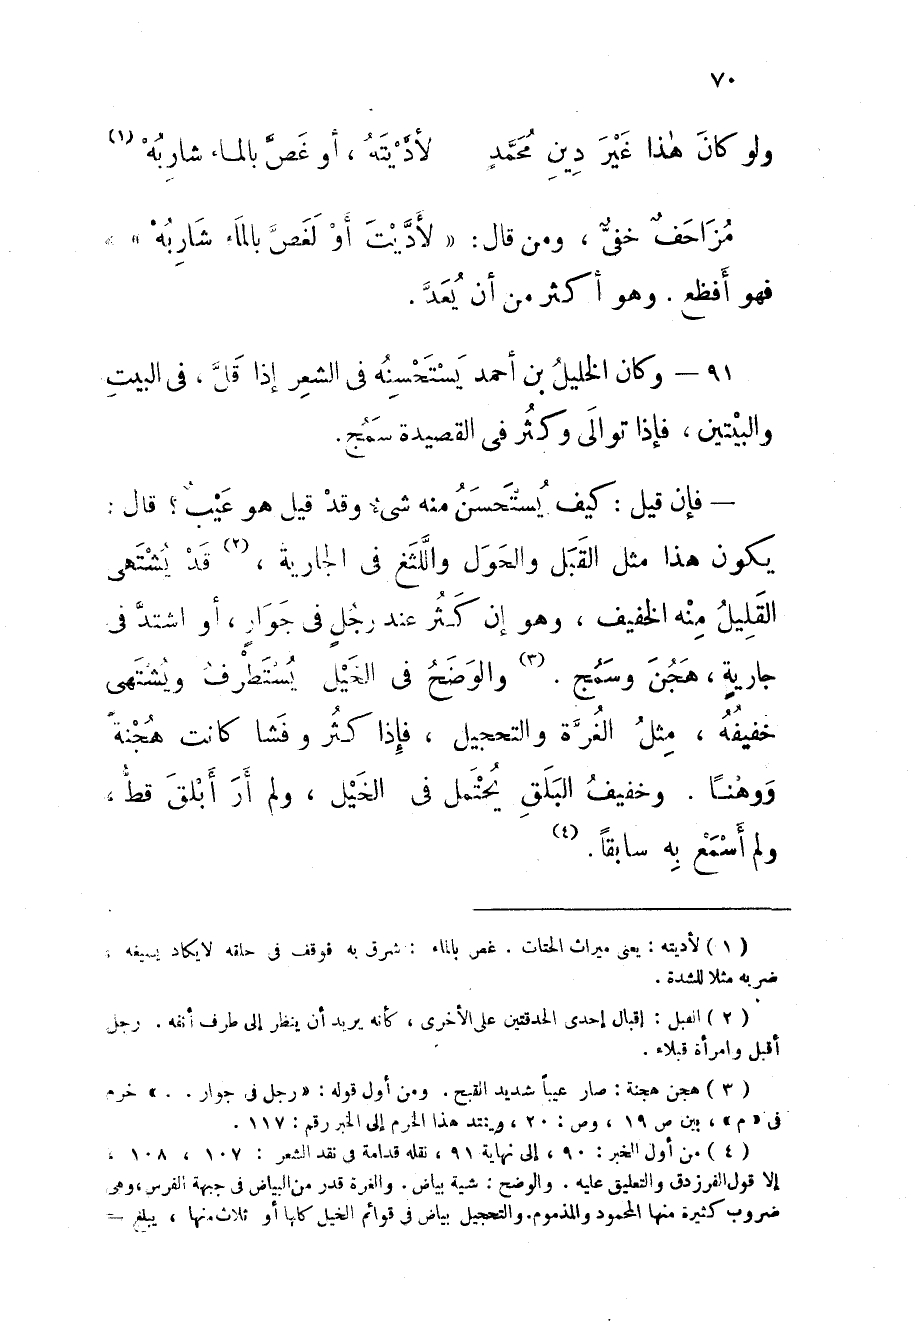 ٧٠
ولو كانَ هٰذا غَيْرَ دِينِ مُحَمَّدٍ لأدَّيْتَهُ ، أو غَصَّ بالماء شارِبُهْ (١)
مُزَاحَفٌ خفىٌّ ، ومن قال : « لأَدَّيْتَ أَوْ لَغَصَّ بالمَاء شَارِبُهْ » ،
فهو أَفظع . وهو أكثر من أن يُعَدَّ .
٩١ — وكان الخليلُ بن أحمد يَسْتَحْسِنُه فى الشعرِ إذا قَلَّ ، فى البيتِ
والبيْتين ، فإذا توالَى وكثُر فى القصيدة سَمُج .
— فإن قيل : كيف يُستَحسَنُ منه شىءٌ وقدْ قيل هو عَيْبٌ ؟ قال :
يكون هذا مثل القَبَل والحَوَل واللَّثَغ فى الجارية ، (٢) قَدْ يُشْتَهى
القَلِيلُ مِنْه الخفيف ، وهو إن كَثُر عند رجُلٍ فى جَوَارٍ ، أو اشتدَّ فى
جاريةٍ ، هَجُنَ وسَمُج . (٣) والوَضَحُ فى الخَيْل يُسْتَطْرفُ ويُشْتَهى
خفيفُهُ ، مِثلُ الغُرَّة والتحجيل ، فإِذا كثُر وفَشا كانت هُجْنةً
وَوهْنًا . وخفيفُ البَلَقِ يُحْتَمل فى الخَيْل ، ولم أرَ أَبْلقَ قطُّ ،
ولم أَسْمَعْ بِه سابقاً . (٤)
( ١ ) لأديته : يعنى ميراث الحتات . غص بالماء : شرق به فوقف فى حلقه لايكاد يسيغه ،
ضربه مثلا للشدة .
( ٢ ) القبل : إقبال إحدى الحدقتين على الأخرى ، كأنه يريد أن ينظر إلى طرف أنفه . رجل
أقبل وامرأة قبلاء .
( ٣ ) هجن هجنة : صار عيباً شديد القبح . ومن أول قوله : « رجل فى جوار . . » خرم
فى « م » ، بين ص ١٩ ، وص : ٢٠ ، ويمتد هذا الخرم إلى الخبر رقم : ١١٧ .
( ٤ ) من أول الخبر : ٩٠ ، إلى نهاية ٩١ ، نقله قدامة فى نقد الشعر : ١٠٧ ، ١٠٨ ،
إلا قول الفرزدق والتعليق عليه . والوضح : شية بياض . والغرة قدر من البياض فى جبهة الفرس ، وهى
ضروب كثيرة منها المحمود والمذموم . والتحجيل بياض فى قوائم الخيل كلها أو ثلاث منها ، يبلغ =